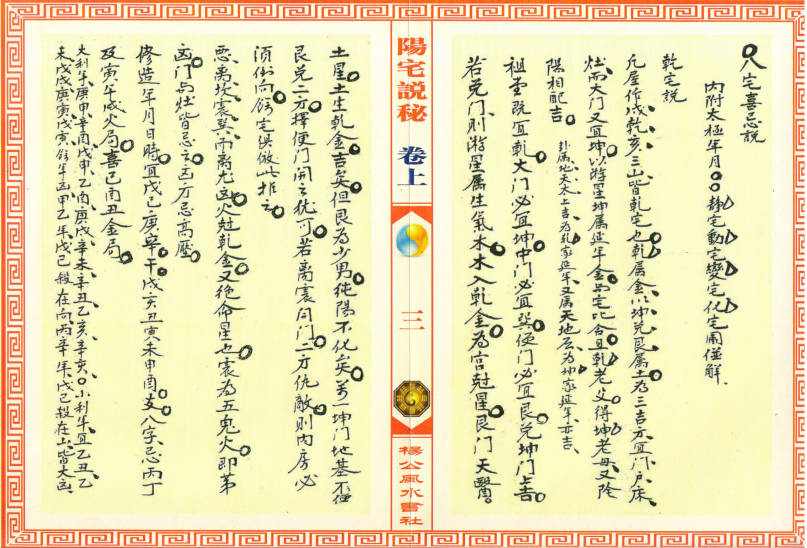 八宅喜忌說
內附太極年月。。靜宅動宅變宅化宅開僅解
乾宅說
凡屋作戌乾亥三山皆乾宅也乾屬金以坤兌艮屬土為三吉方宜門戶床
灶而大門又宜坤以游星坤屬延年金與宅比合且乾老父得坤老母又陰
陽相配吉
卦屬地天文上吉為乾家延年又屬天地否為坤家延年亦吉
祖堂既宜乾大門必宜坤中門必宜巽便門必宜艮兌坤門上吉
若兌門則游星屬生氣木木入乾金為宮尅星艮門天醫
陽宅說秘 卷上
三一
楊公風水書社
土星土生乾金吉矣但艮為少男純陽不化矣萬一坤門地基不便
艮兌二方擇便門開之犹可若離震向門二方仇敵則內房必
須倒向餘宅俱倣此推之
惡離坎震巽而離尤凶火尅乾金又絕命星也震為五鬼火即第
凶門与灶皆忌之凶方忌高壓
修造年月日時宜戊己庚辛干戌亥丑寅未申酉支八字忌丙丁
及寅午戌火局喜巳酉丑金局
大利年庚申辛酉戊申乙酉庚戌辛未辛丑乙亥辛亥。小利年宜乙丑乙
未戊戌庚寅戊寅餘年凶甲乙年戊己殺在向丙辛年戊己殺在山皆大凶